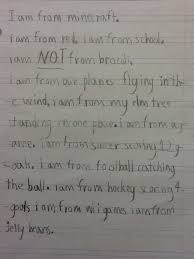 I am from mincraft.
i am from red. i am from school.
i am NOT from bracoli.
i am from our planes flying in the
wind, i am from my elm tree
standing in one place. i am from a
game. i am from soccer scoring
goals. i am from football catching
the ball. i am from hockey scoring 4
goals i am from wii games. i am from
jelly beans.